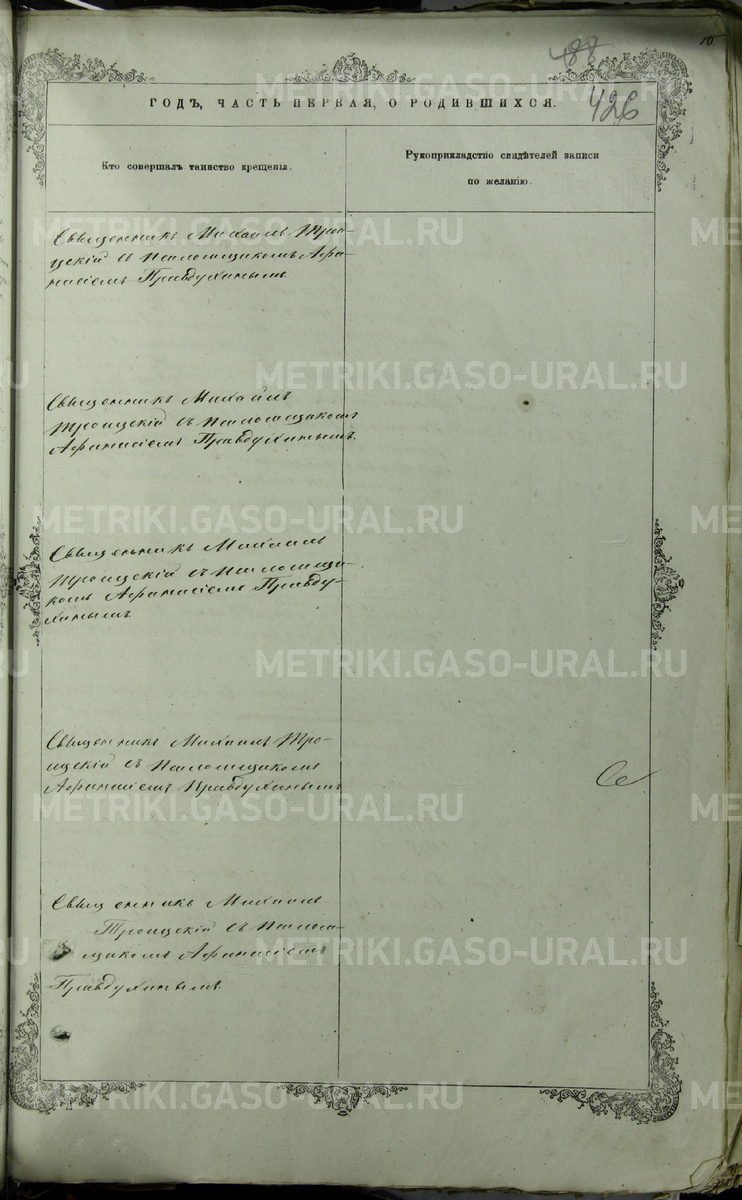 10
488
426
ГОДЪ, ЧАСТЬ ПЕРВАЯ, О РОДИВШИХСЯ.
Кто совершалъ таинство крещенія.
Рукоприкладство свидѣтелей записи
по желанію.
Священникъ Михаилъ Трои-
цскій съ Псаломщикомъ Афа-
насіемъ Правдухинымъ.
Священникъ Михаилъ
Троицскій съ Псаломщикомъ
Афанасіемъ Правдухинымъ.
Священникъ Михаилъ
Троицскій съ Псаломщи-
комъ Афанасіемъ Правду-
хинымъ
Священникъ Михаилъ Тро-
ицскій съ Псаломщикомъ
Афанасіемъ Правдухинымъ
Священникъ Михаилъ
Троицскій съ Псалом-
щикомъ Афанасіемъ
Правдухинымъ
METRIKI.GASO-URAL.RU